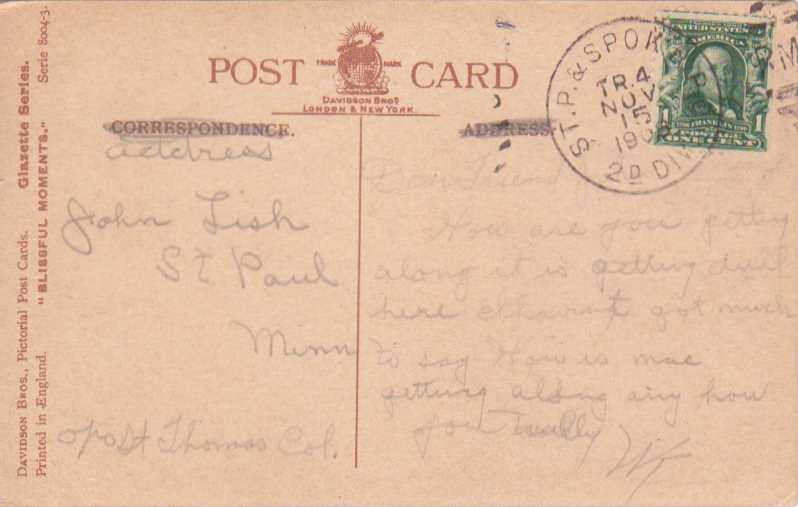 POST CARD
TRADE MARK
DAVIDSON BROS
LONDON & NEW YORK.
CORRESPONDENCE.
ADDRESS.
address
John Lish
St Paul
Minn
c/o St Thomas Col.
Dear Friend
How are you getting
along it is getting dull
here havent got much
to say How is mac
getting along any how
WK
ST. P. & SPOK
TR. 4
NOV
15
190
2D DIV
UNITED STATES
AMERICA
FRANKLIN
1 POSTAGE 1
ONE CENT
DAVIDSON BROS., Pictorial Post Cards. Glazette Series.
Printed in England. "BLISSFUL MOMENTS." Serie 8004-3.